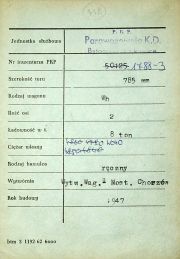 P. K. P.
Jednostka służbowa Parowozownia K.D.
Nr inwentarza PKP 50125 1788-3
Szerokość toru 785 mm
Rodzaj wagonu Wh
Ilość osi 2
Ładowność w t. 8 ton
Ciężar własny
Rodzaj hamulca ręczny
Wytwórnia Wytw.Wag.i Most. Chorzów
Rok budowy 1947